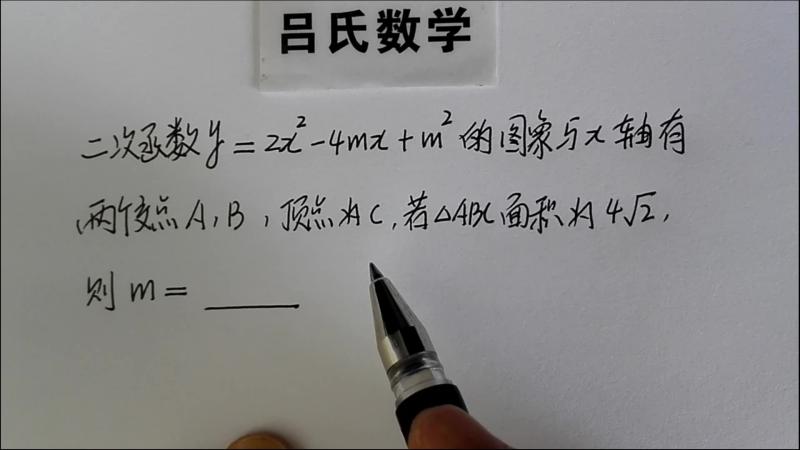 吕氏数学
二次函数y=2x²-4mx+m²的图象与x轴有
两个交点A,B,顶点为C,若△ABC面积为4√2,
则m=____